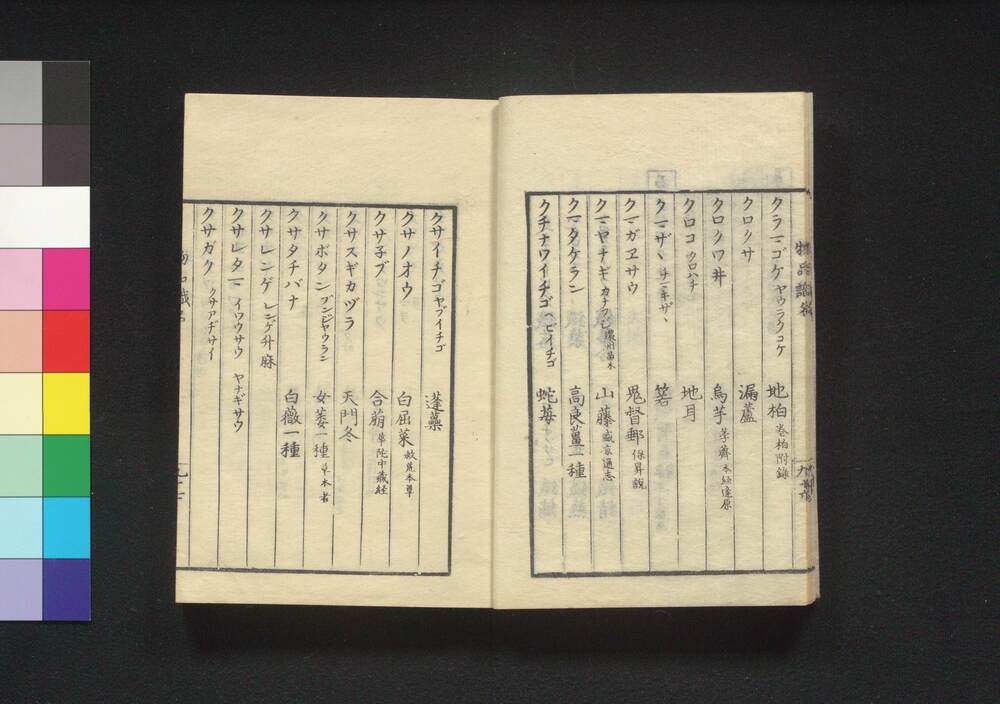 クラマゴケ ヤウラクゴケ 地柏 巻柏附録
クロクサ 漏蘆
クロクワ井 烏芋 荸薺 本経逢原
クロコ クロハチ 地月
クマザヽ チマキザヽ 箬
クマガヱサウ 鬼督郵 保昇説
クマヤナギ カナフジ 濃州苗木 山藤 盛京通志
クマタケラン 高良薑一種
クチナワイチゴ ヘビイチゴ 蛇苺
クサイチゴ ヤブイチゴ 蓬虆
クサノオウ 白屈菜 救荒本草
クサ子ブ 合萠 華陀中蔵経
クサスギカヅラ 天門冬
クサボタン ブンジヤウラン 女萎一種 草本者
クサタチバナ 白薇一種
クサレンゲ レンゲ升麻
クサレダマ イワウサウ ヤナギサウ
クサガク クサアヂサイ